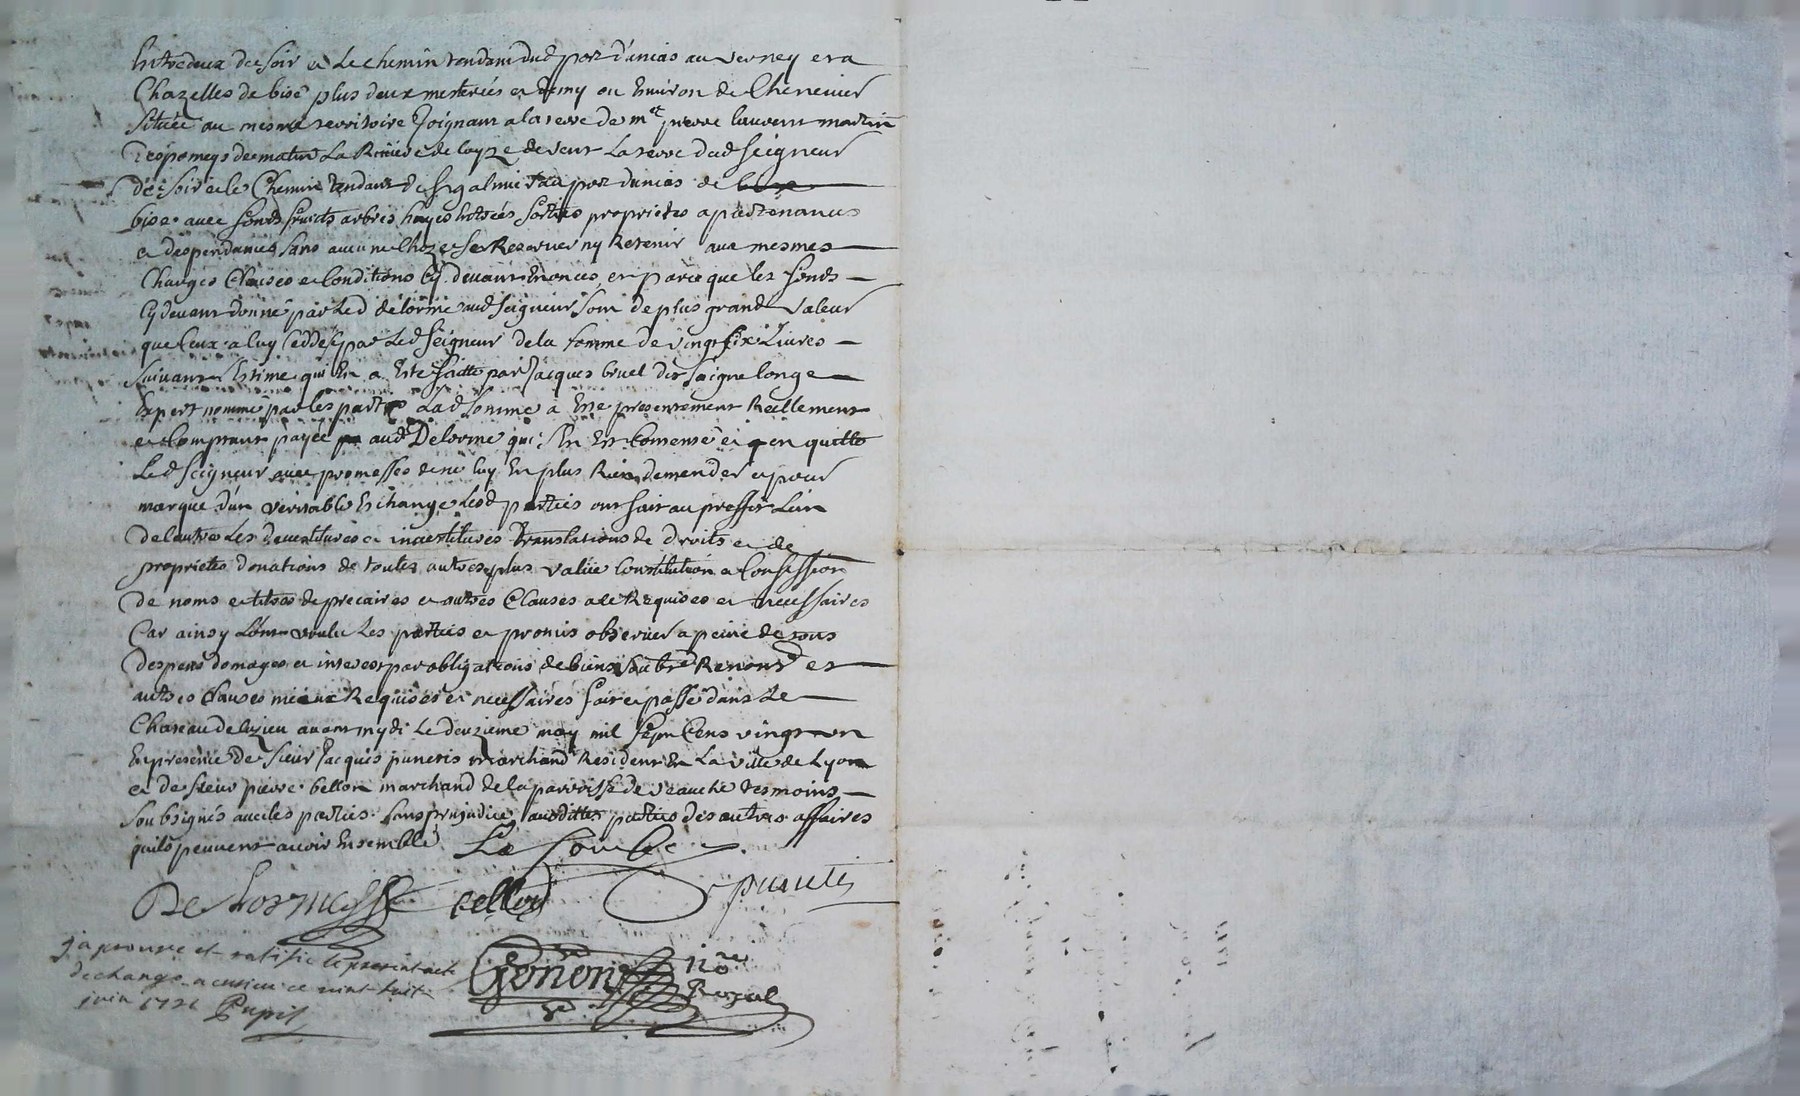 Entredeux de soir et le chemin tendant dud port d'unias au verney et a
Chazelles de bise plus deux mesterées et demy ou Environ de Chenevier
Située au mesme territoire Joignant a la terre de mᵉ pierre laurent martin
de matin La Riviere de loyze de vent La terre dud Seigneur
de soir et le Chemin tendant de Sᵗ galmier au port dunias de
bise avec fonds fruits arbres hayes Entrées Sorties proprietes apartenances
et dependances sans aucune Choze se Rezerver ny Retenir aux mesmes
Charges Clauses et Conditions Cy devant Enonces, et parce que les fonds
Cy devant donné par Led delorme aud seigneur sont de plus grande valeur
que Ceux a luy Ceddés par Led Seigneur de la somme de vingt six Livres
Suivant L'Estime qui En a Esté faitte par Jacques bruel dit saignelonge
Expert nommé par les parties Lad somme a Esté presentement Reellement
et Comptant payée aud Delorme qui s'En Est Contenté et en quitte
Led Seigneur avec promesses de ne luy En plus Rien demender et pour
marque d'un veritable Echange Lesd parties ont fait au proffit L'un
de l'autre Les devestitures et investitures translations de droits et de
proprietes donations de toutes autres plus value Constitution et Confession
de noms et titres de precaires et autres Clauses a ce Requises et necessaires
Car ainsy L'ont voulu Les parties et promis observer a peine de tous
despens domages et interest par obligations de biens Renonᵈ et
autres Clauses mieux Requises et necessaires fait et passé dans Le
Chateau de avant mydi Le deuzieme may mil sept Cens vingt un
En presence de sieur Jacques puneris marchand Resident En La ville de Lyon
et de sieur pierre bellon marchand de la parroisse de veauche tesmoins
Soubsignés avec les parties sans prejudice ausdittes parties des autres affaires
quils peuvent avoir Ensemble
Delorme bellon
Gonon noʳᵉ
Royal
J'aprouve et ratifie le present acte
dechange a ce vint huit
juin 1721 Pupil